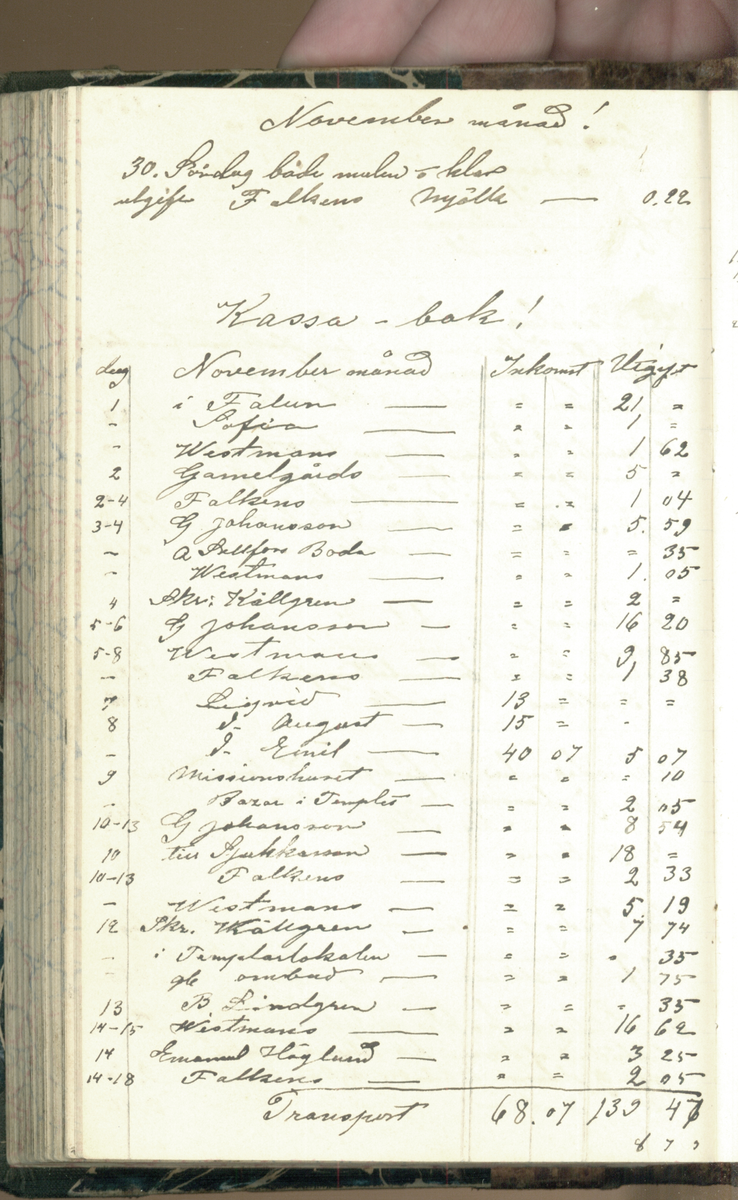 November månad!
30. Söndag både mulen o klar
utgift Falkens Mjölk — 0.22
Kassa-bok!
dag November månad Inkomst Utgift
1 i Falun — " " 21 "
- Sofia — " " 1 "
- Westmans — " " 1 62
2 Gamelgårds — " " 5 "
2-4 Falkens — " " 1 04
3-4 G Johansson — " " 5. 59
- A Boda — " " " 35
- Westmans — " " 1. 05
4 Skr: Källgren — " " 2 "
5-6 G Johansson — " " 16 20
5-8 Westmans — " " 9, 85
- Falkens — " " 1 38
7 Sigvid — 13 " " "
8 J- August — 15 " -
- J- Emil — 40 07 5 07
9 Missionshuset — " " " 10
- Bazar i Templet — " " 2 05
10-13 G Johansson — " " 8 54
10 till — " " 18 "
10-13 Falkens — " " 2 33
- Westmans — " " 5. 19
12 Skr. Källgren — " " 7 74
- i Templarlokalen — " " . 35
- gb ombud — " " 1 75
13 B. Lindgren — " " " 35
14-15 Westmans — " " 16 62
14 Emanuel Höglund — " " 3 25
14-18 Falkens — " " 2 05
Transport 68.07 139 47
8 7